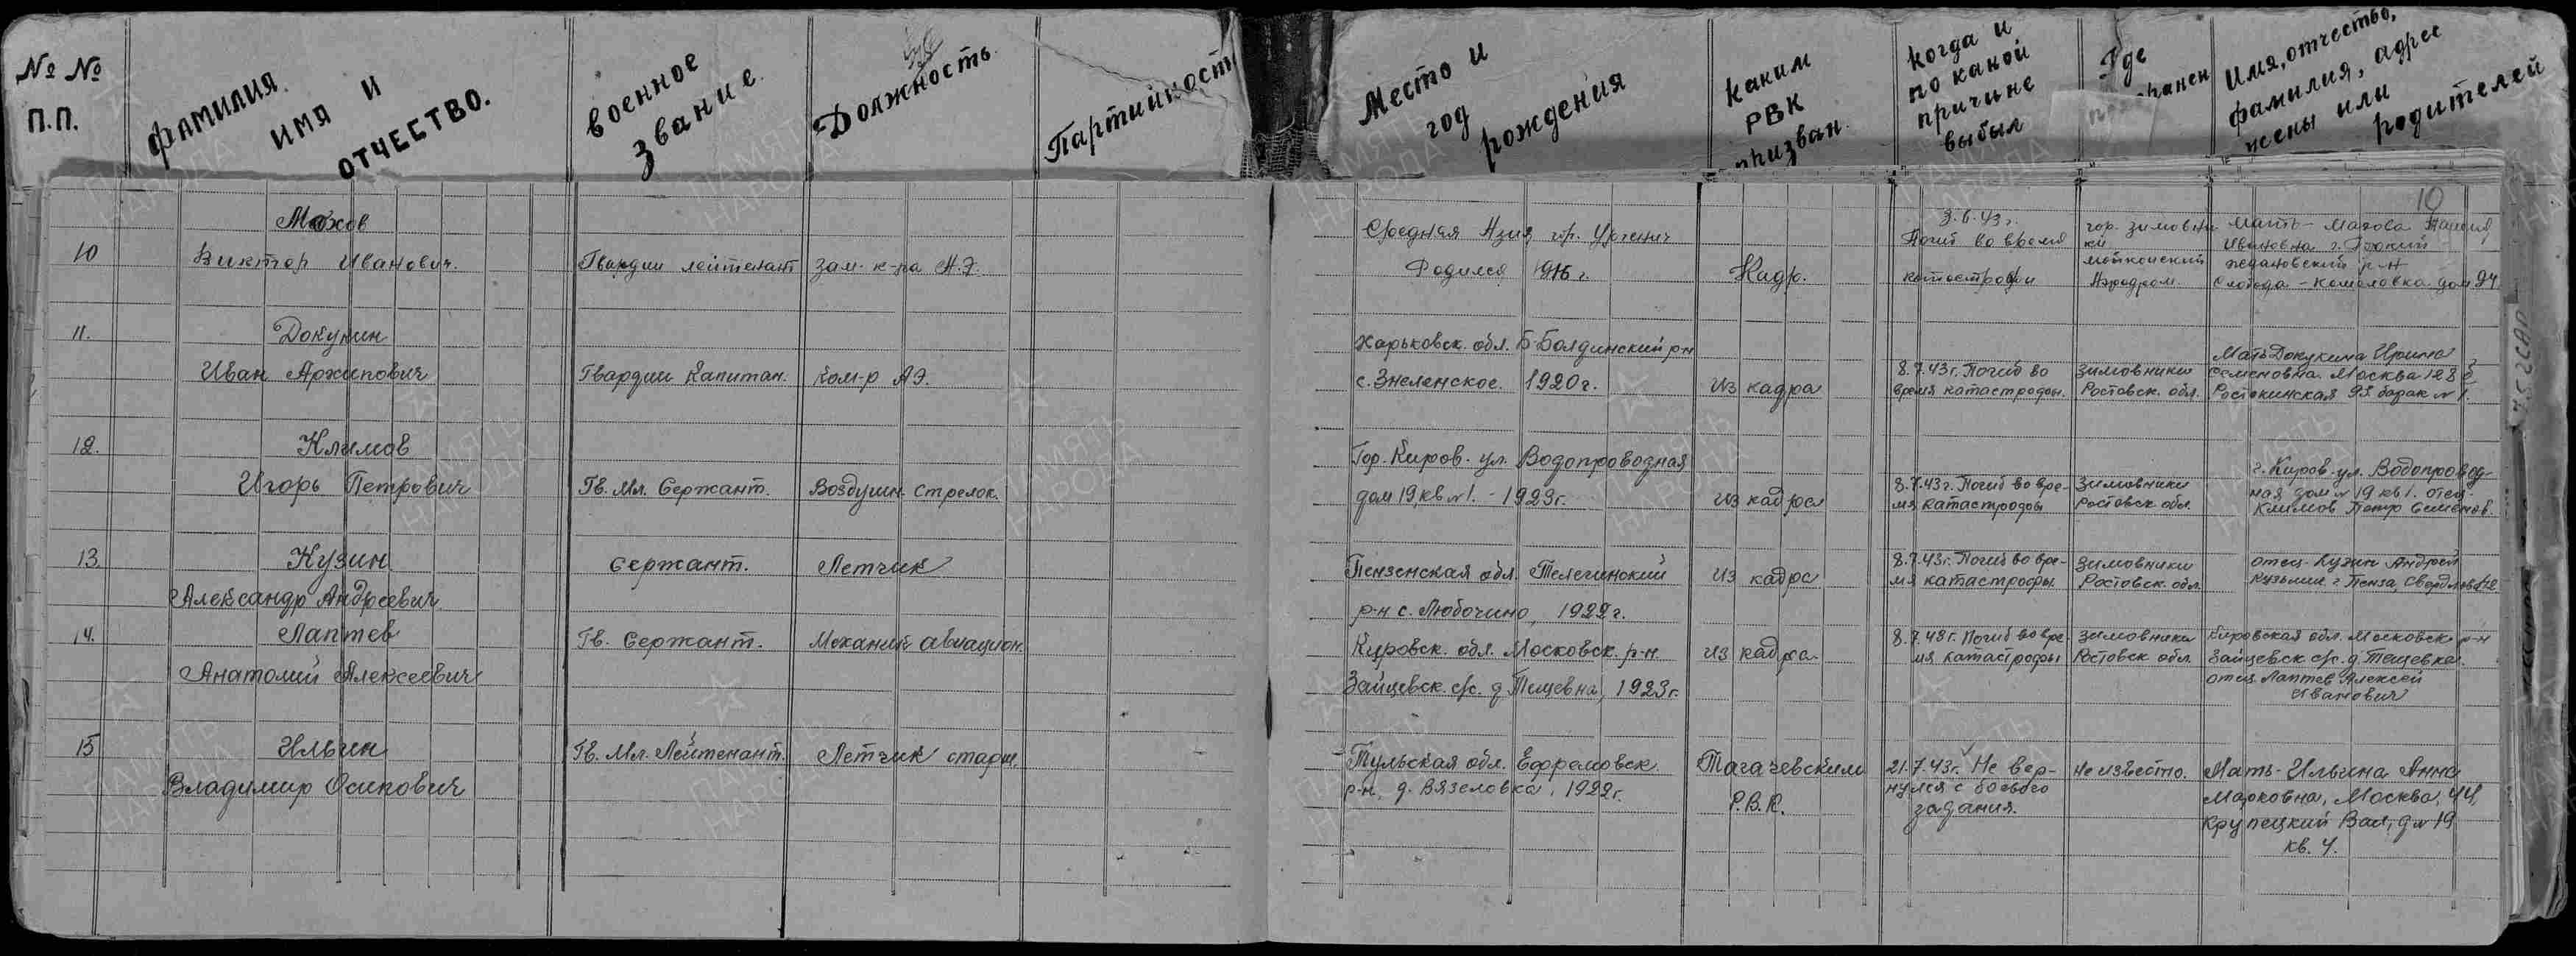 № № П.П.
ФАМИЛИЯ ИМЯ И ОТЧЕСТВО.
Военное звание.
Должность.
Партийность
Место и год рождения
Каким РВК призван.
Когда и по какой причине выбыл
Где
Имя, отчество, фамилия, адрес жены или родителей
10
10
Мохов
Виктор Иванович.
Гвардии лейтенант
Зам. к-ра А.Э.
Средняя Азия гор. Ургенич
Родился 1916 г.
Кадр.
3.6.43 г.
Погиб во время
катострофи
гор. Зимовни
ки
Аэродром.
Мать - Махова
Ивановна г. Горкий
ждановский р-н
Слобода - Кошеловка дом 94
11.
Докукин
Иван Архипович
Гвардии Капитан.
Ком-р АЭ.
Харьковск. обл. Б-Болдинский р-н
с. Знеленское. 1920 г.
Из кадра
8.7.43г. Погиб во
время катастрофы.
Зимовники
Ростовск. обл.
Мать Докукина Ирина
Семеновна. Москва 128
Ростокинская 93 барак № 1.
12.
Климов
Игорь Петрович
Гв. Мл. Сержант.
Воздушн. Стрелок.
Гор. Киров. ул. Водопроводная
дом 19, кв № 1. - 1923г.
из кадра
8.7.43г. Погиб во вре-
мя катастрофы
Зимовники
Ростовск. обл.
г. Киров. ул. Водопровод-
ная дом № 19 кв 1. отец-
Климов Петр Семенов.
13.
Кузин
Александр Андреевич
Сержант.
Летчик
Пензенская обл. Телегинский
р-н с. Любочино, 1922 г.
из кадра
8.7.43г. Погиб во вре-
мя катастрофы.
Зимовники
Ростовск. обл.
отец - Кузин Андрей
Кузьмич г Пенза,
14.
Лаптев
Анатолий Алексеевич
Гв. Сержант.
Механик авиацион.
Кировск. обл. Московск. р-н.
Зайцевск. с/с. д Тещевка, 1923г.
из кадра
8.7.43г. Погиб во вре-
мя катастрофы
Зимовники
Ростовск обл.
Кировская обл. Московск р-н
Зайцевск с/с. д. Тещевка.
отец Лаптев Алексей
Иванович
15
Ильин
Владимир Осипович
Гв. Мл. Лейтенант.
Летчик старш.
Тульская обл. Ефремовск.
р-н. д. Вязеловка. 1922г.
Тагачевским
Р.В.К.
21.7.43г. Не вер-
нулся с боевого
задания.
Не известно.
Мать - Ильина Анна
Марковна, Москва, 44,
Крупецкий Вал, д № 19
кв. 4.
ПАМЯТЬ НАРОДА